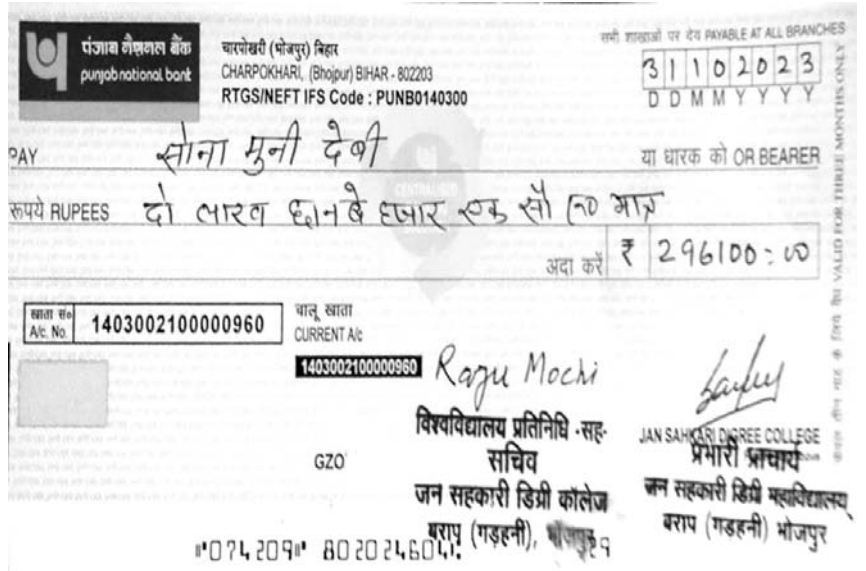 पंजाब नैशनल बैंक
punjab national bank
चारपोखरी (भोजपुर) बिहार
CHARPOKHARI, (Bhojpur) BIHAR - 802203
RTGS/NEFT IFS Code : PUNB0140300
सभी शाखाओं पर देय PAYABLE AT ALL BRANCHES
3 1 1 0 2 0 2 3
D D M M Y Y Y Y
PAY सोना मुनी देवी या धारक को OR BEARER
रूपये RUPEES दो लाख छानबे हजार एक सौ रु० मात्र
अदा करें ₹ 296100=00
खाता सं० A/c. No. 14030021000000960
चालू खाता
CURRENT A/c
14030021000000960
Raju Mochi
विश्वविद्यालय प्रतिनिधि -सह-
सचिव
जन सहकारी डिग्री कॉलेज
बराप (गड़हनी),
GZO
JAN SAHKARI DIGREE COLLEGE
प्रभारी प्राचार्य
जन सहकारी डिग्री महाविद्यालय
बराप (गड़हनी) भोजपुर
⑈074209⑈
VALID FOR THREE MONTHS ONLY